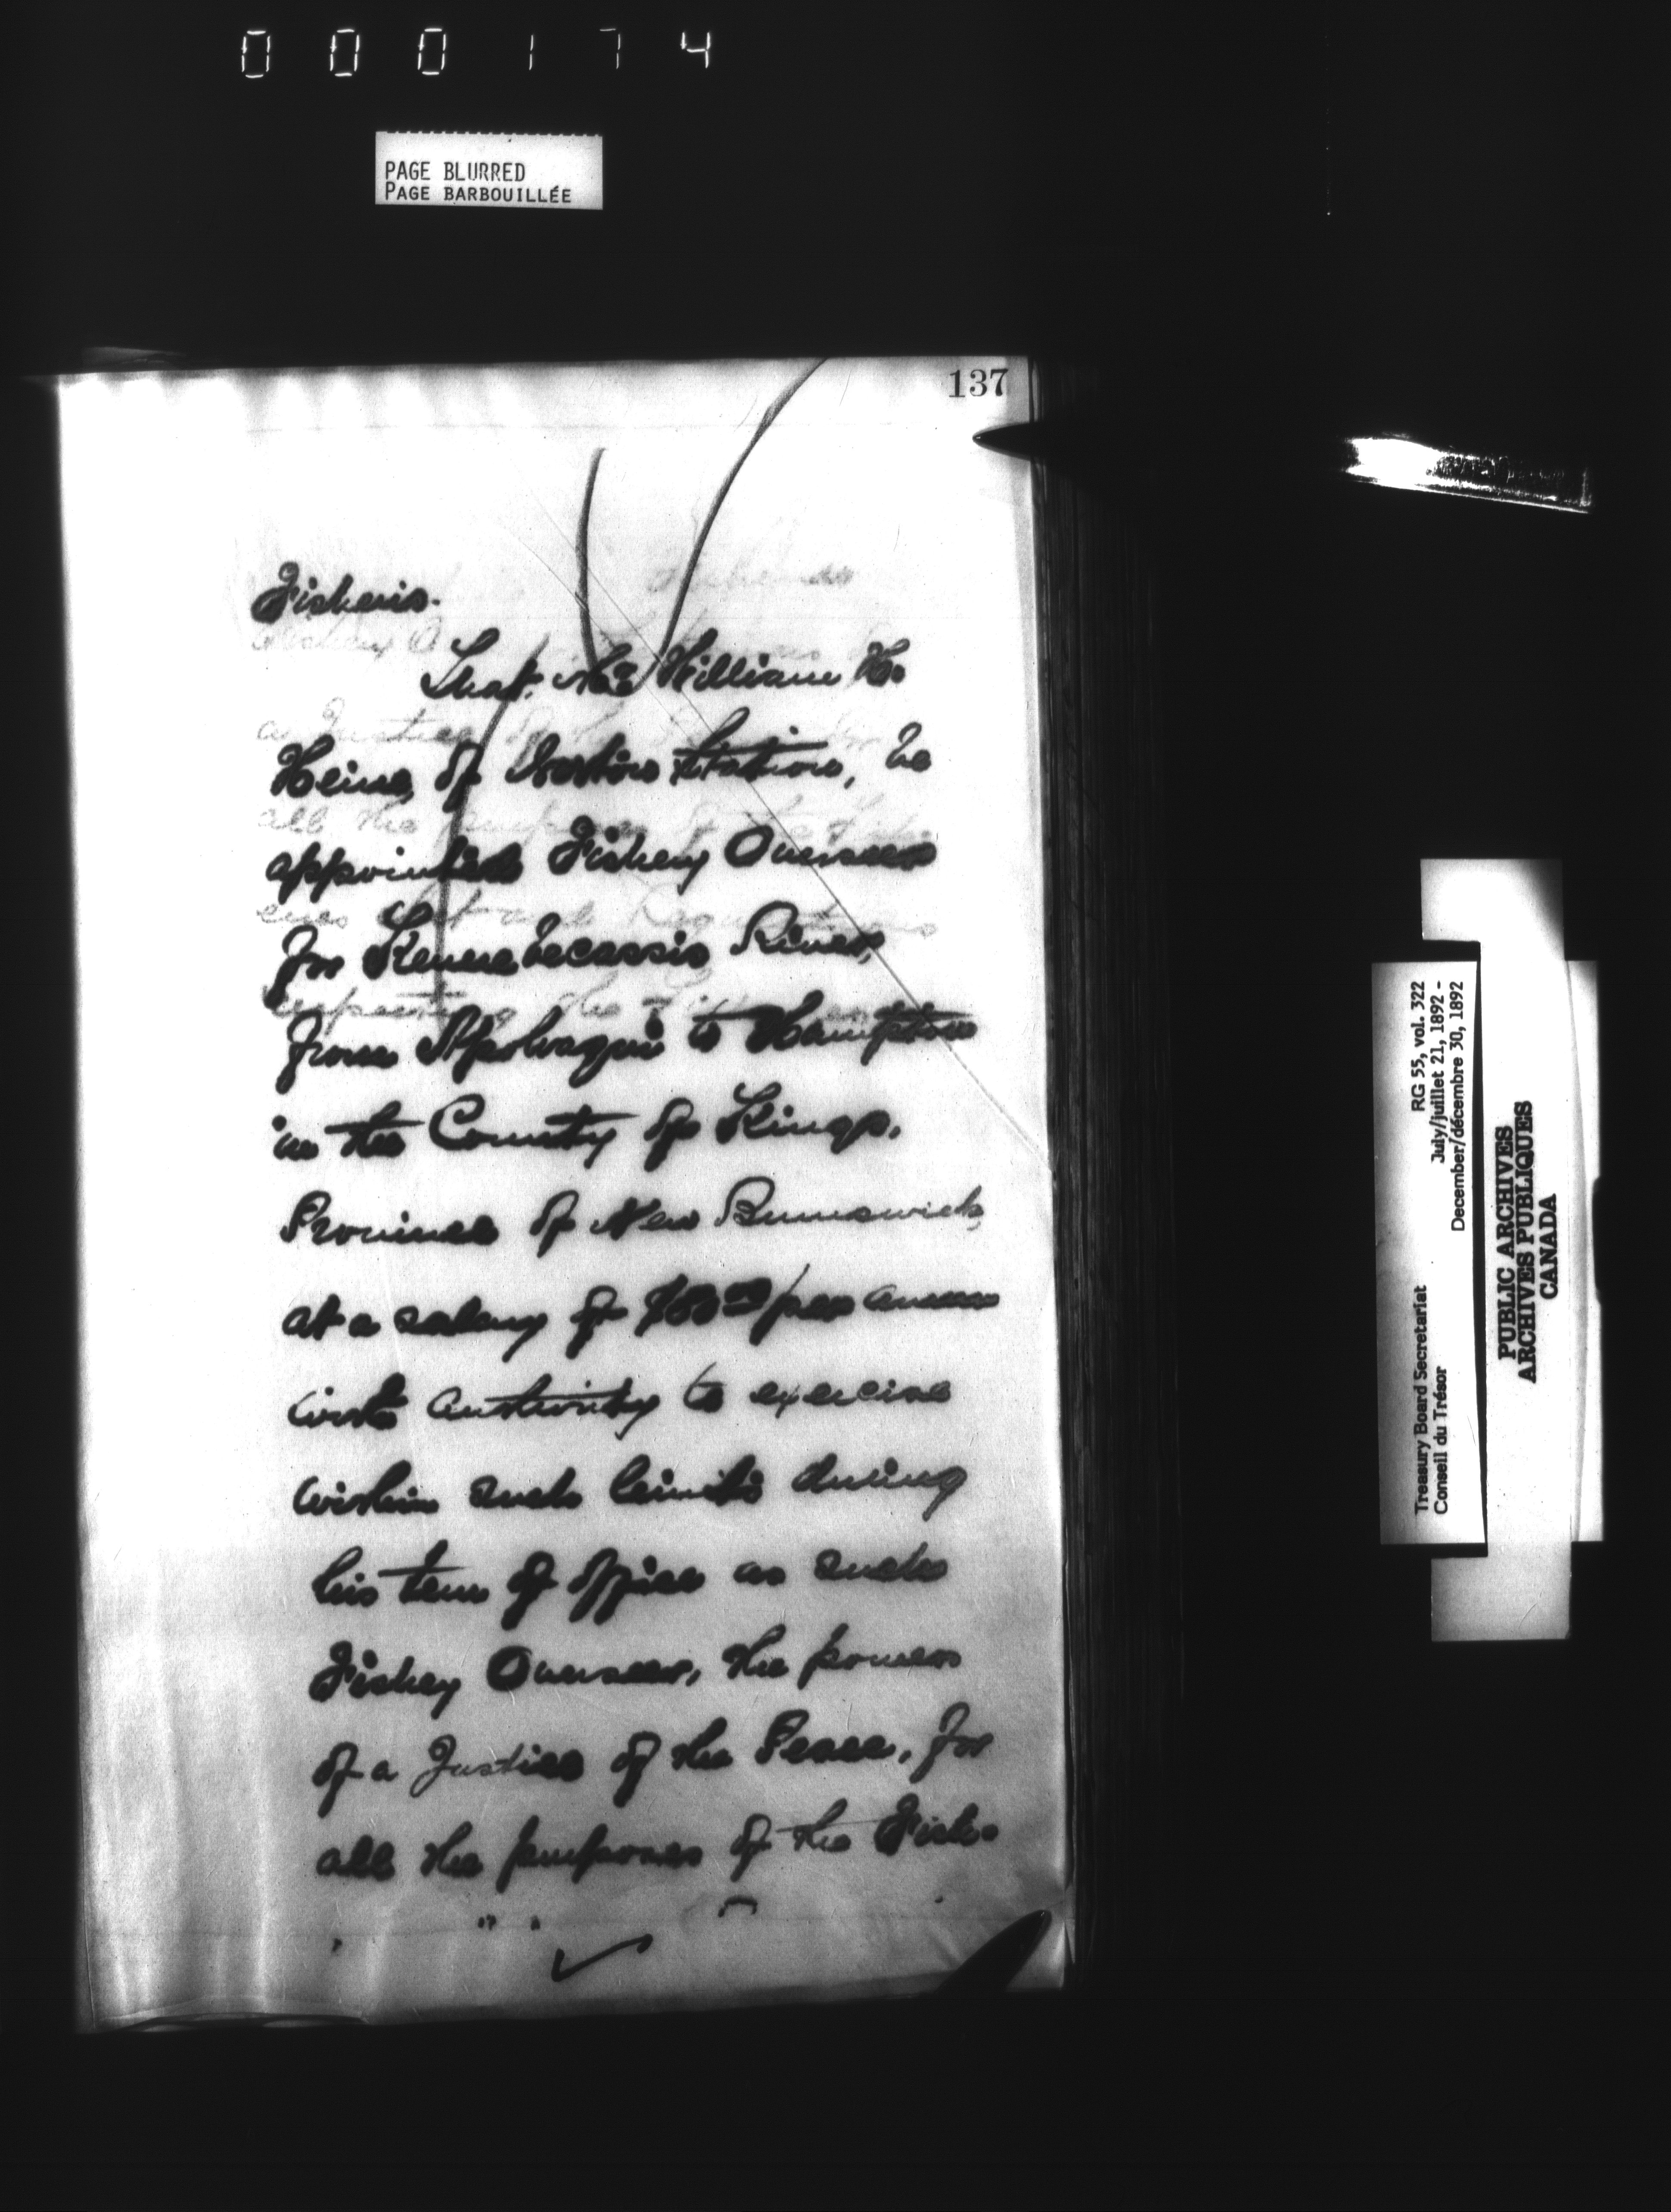 000174
PAGE BLURRED
PAGE BARBOUILLÉE
137
Fisheries.
That Mr William H.
Heine of Norton Station, be
appointed Fishery Overseer
for Kennebecassis River,
from Apohaqui to Hampton
in the County of Kings,
Province of New Brunswick,
at a salary of per annum
with authority to exercise
within such limits during
his term of office as such
Fishery Overseer, the powers
of a Justice of the Peace, for
all the purposes of the Fish-
Treasury Board Secretariat RG 55, vol. 322
Conseil du Trésor July/juillet 21, 1892 -
December/décembre 30, 1892
PUBLIC ARCHIVES
ARCHIVES PUBLIQUES
CANADA